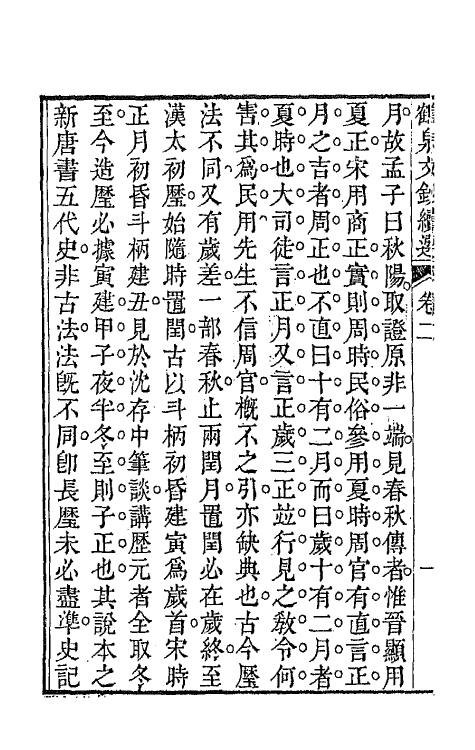 鶴泉文鈔續選 卷二 一
月故孟子曰秋陽取證原非一端見春秋傳者惟晉顯用
夏正宋用商正實則周時民俗參用夏時周官有直言正
月之吉者周正也不直曰十有二月而曰歲十有二月者
夏時也大司徒言正月又言正歲三正竝行見之敎令何
害其爲民用先生不信周官槪不之引亦缺典也古今曆
法不同又有歲差一部春秋止兩閏月置閏必在歲終至
漢太初曆始隨時置閏古以斗柄初昏建寅爲歲首宋時
正月初昏斗柄建丑見於沈存中筆談講歷元者全取冬
至今造曆必據寅建甲子夜半冬至則子正也其說本之
新唐書五代史非古法法旣不同卽長曆未必盡準史記